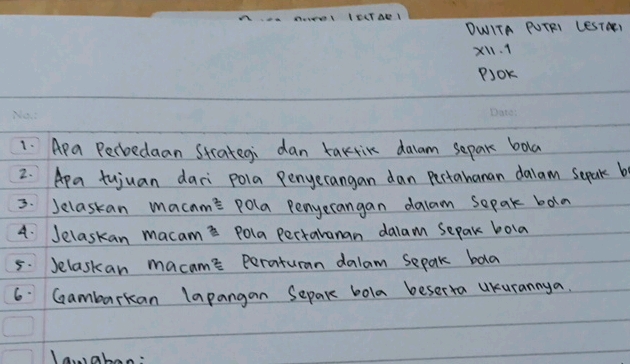 DWITA PUTRI LESTARI
XII.1
PJOK
No.:
Date:
1. Apa Perbedaan Strategi dan taktik dalam sepak bola
2. Apa tujuan dari pola Penyerangan dan Pertahanan dalam sepak
3. Jelaskan macam² pola Penyerangan dalam Sepak bola
4. Jelaskan macam² Pola Pertahanan dalam Sepak bola
5. Jelaskan macam² Peraturan dalam Sepak bola
6. Gambarkan lapangan Sepak bola beserta ukurannya.
Jawaban: